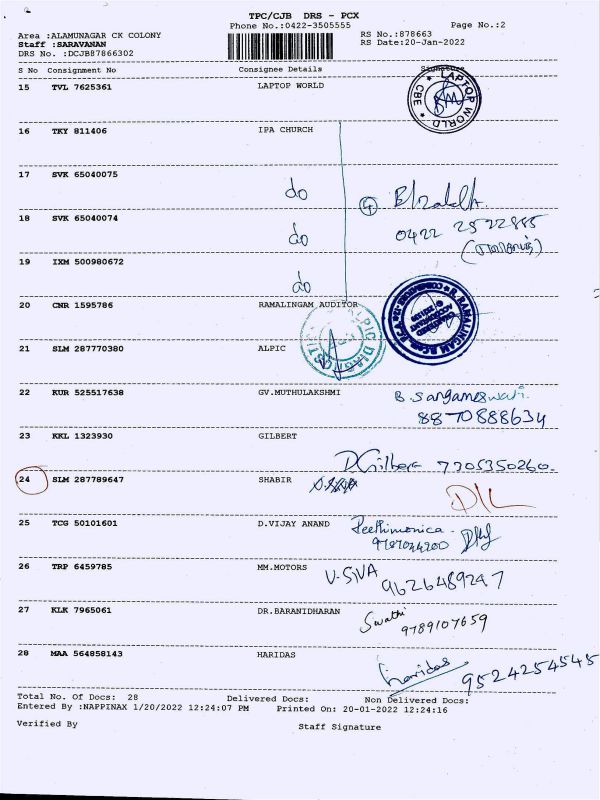 TPC/CJB DRS - PCX
Phone No.:0422-3505555 Page No.:2
Area :ALAMUNAGAR CK COLONY RS No.:878663
Staff :SARAVANAN RS Date:20-Jan-2022
DRS No. :DCJB87866302
S No Consignment No Consignee Details Signature
15 TVL 7625361 LAPTOP WORLD
LAPTOP WORLD ★ CBE ★
16 TKY 811406 IPA CHURCH
17 SVK 65040075 do
18 SVK 65040074 do 0422 2522885
19 IXM 500980672 do
20 CNR 1595786 RAMALINGAM AUDITOR
21 SLM 287770380 ALPIC
22 KUR 525517638 GV.MUTHULAKSHMI B.Sangameswari.
8870888634
23 KKL 1323930 GILBERT
D Gilbert 7705350260.
24 SLM 287789647 SHABIR
25 TCG 50101601 D.VIJAY ANAND
26 TRP 6459785 MM.MOTORS V-SIVA 9626489297
27 KLK 7965061 DR.BARANIDHARAN Swathi
9789107659
28 MAA 564858143 HARIDAS Haridas 9524254545
Total No. Of Docs: 28 Delivered Docs: Non Delivered Docs:
Entered By :NAPPINAX 1/20/2022 12:24:07 PM Printed On: 20-01-2022 12:24:16
Verified By Staff Signature